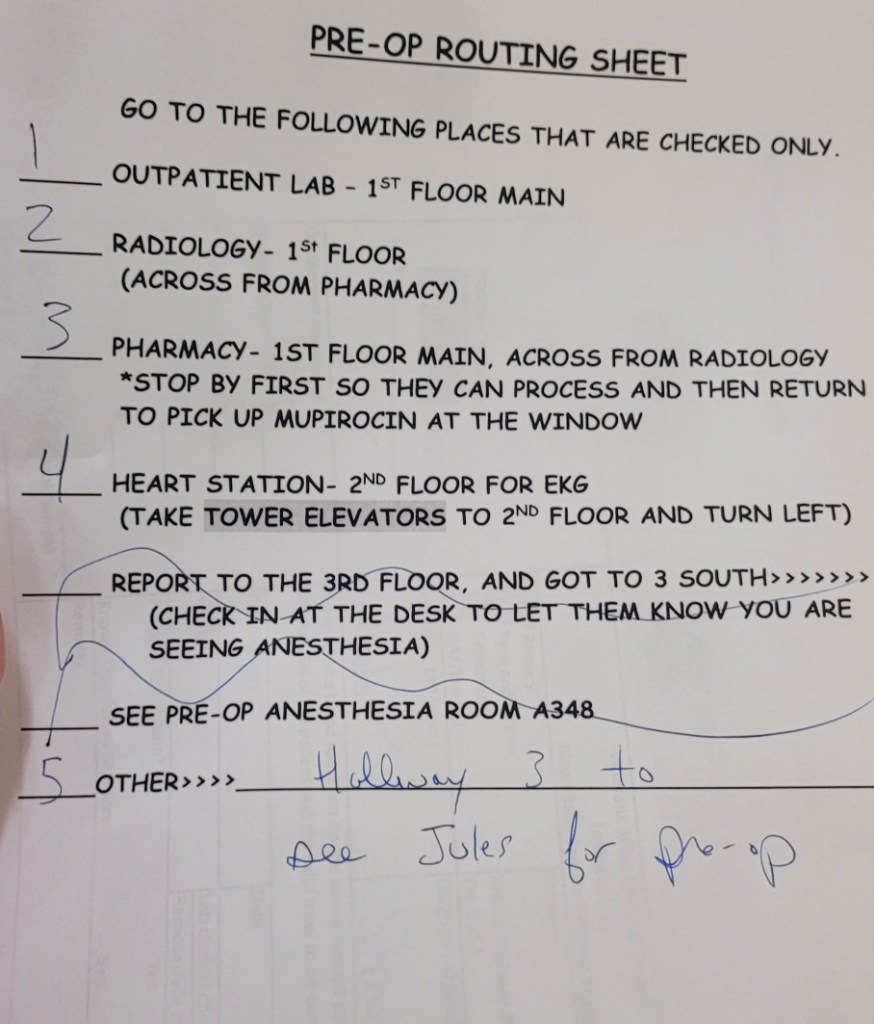 PRE-OP ROUTING SHEET
GO TO THE FOLLOWING PLACES THAT ARE CHECKED ONLY.
1 OUTPATIENT LAB - 1ST FLOOR MAIN
2 RADIOLOGY- 1St FLOOR
(ACROSS FROM PHARMACY)
3 PHARMACY- 1ST FLOOR MAIN, ACROSS FROM RADIOLOGY
*STOP BY FIRST SO THEY CAN PROCESS AND THEN RETURN
TO PICK UP MUPIROCIN AT THE WINDOW
4 HEART STATION- 2ND FLOOR FOR EKG
(TAKE TOWER ELEVATORS TO 2ND FLOOR AND TURN LEFT)
REPORT TO THE 3RD FLOOR, AND GOT TO 3 SOUTH>>>>>>>
(CHECK IN AT THE DESK TO LET THEM KNOW YOU ARE
SEEING ANESTHESIA)
SEE PRE-OP ANESTHESIA ROOM A348
5 OTHER>>>> Hallway 3 to
see Jules for pre-op